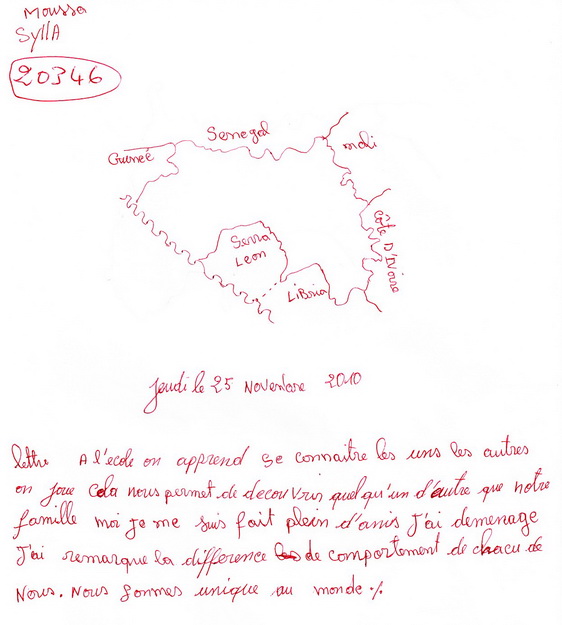 Moussa
Sylla
20346
Senegal
Guineé
mali
Côte D'Ivoire
Serra
Leon
LiBiria
Jeudi le 25 Novembre 2010
lettre A l'ecole on apprend se connaitre les uns les autres
on joue Cela nous permet de decouvrir quelqu'un d'autre que notre
famille moi je me suis fait plein d'amis J'ai demenage
J'ai remarque la difference de comportement de chacu de
Nous. Nous sommes unique au monde ./.